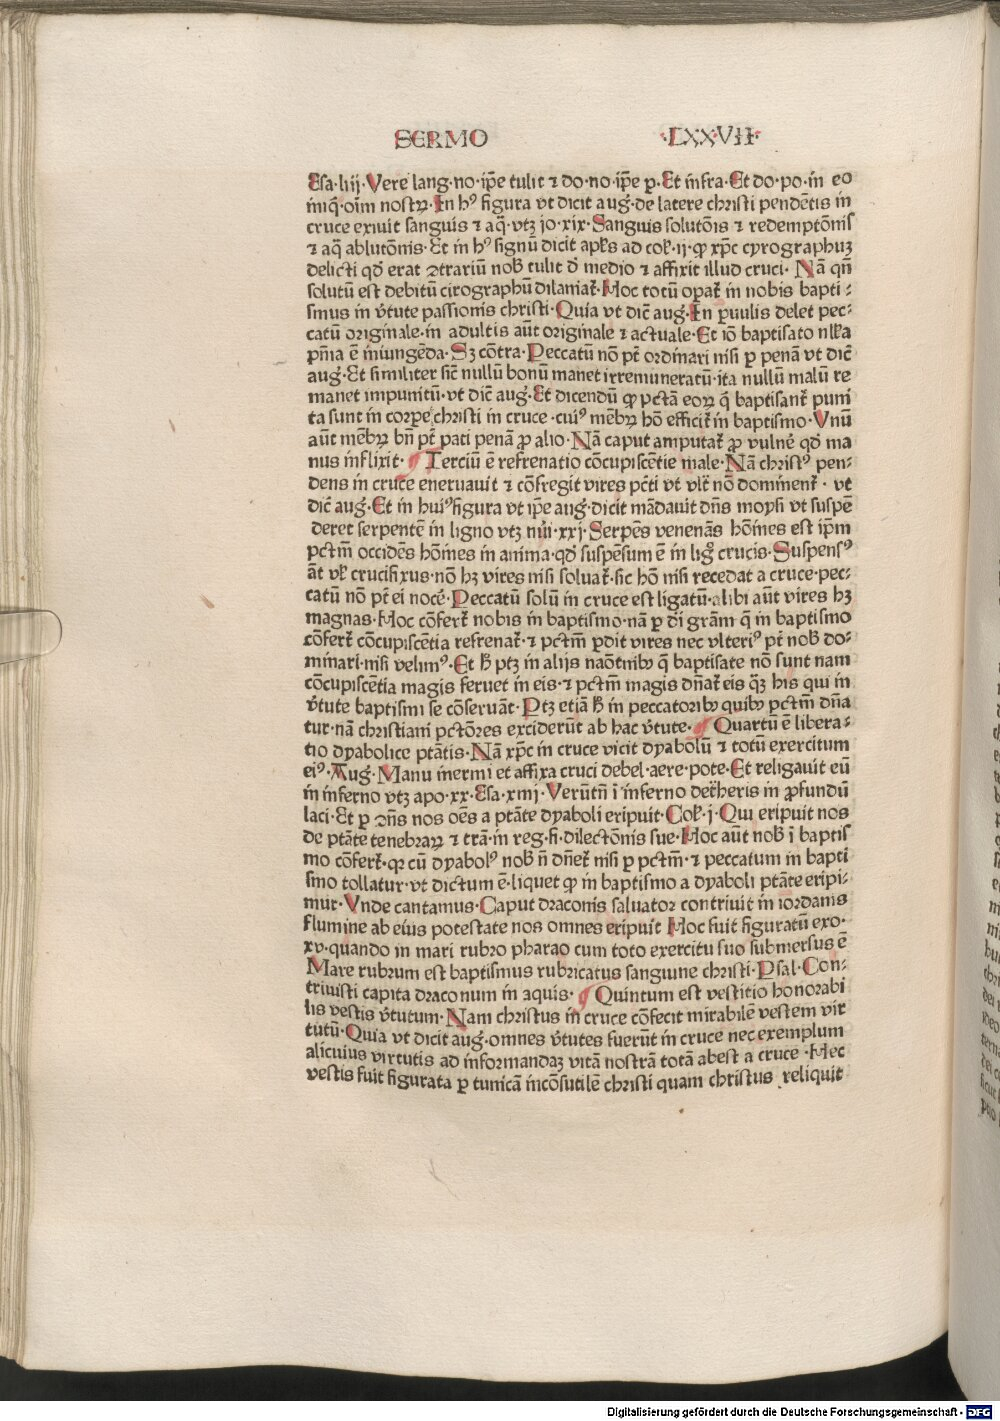 SERMO ·LXXVII·
Esa·liij·Vere lang·no·ip̄e tulit ⁊ do·no·ip̄e p̱·Et infra·Et do·po·in eo
iniq̄·oīm nostrꝝ·In hꝰ figura vt dicit aug·de latere christi pendētis in
cruce exiuit sanguis ⁊ aq̄·vtꝫ jo·xix·Sanguis solutōis ⁊ redemptōnis
⁊ aq̄ ablutōnis·Et in hꝰ signū dicit apl̄s ad col̄·ij·ꝙ xp̄c cyrographuꝫ
delicti qd̄ erat ꝯtrariū nob̄ tulit d̄ medio ⁊ affixit illud cruci· Nā qn̄
solutū est debitū cirographū dilaniat̄·Hoc totū opat̄ in nobis bapti⸗
smus in v̄tute passionis christi·Quia vt dic̄ aug·In p̱uulis delet pec⸗
catū originale·in adultis aūt originale ⁊ actuale·Et iō baptisato nl̄la
pn̄ia ē iniungēda·Sꝫ cōtra·Peccatū nō pt̄ ordinari nisi p̱ penā vt dic̄
aug·Et similiter sic̄ nullū bonū manet irremuneratū·ita nullū malū re
manet impunitū·vt dic̄ aug·Et dicendū ꝙ pctā eoꝝ q̄ baptisant̄ puni
ta sunt in corpe christi in cruce·cuiꝰ mēbꝝ hō efficit̄ in baptismo·Vnū
aūt mēbꝝ bn̄ pt̄ pati penā ꝓ alio·Nā caput amputat̄ ꝓ vulnē qd̄ ma
nus inflixit· ¶ Terciū ē refrenatio cōcupiscētie male·Nā christꝰ pen⸗
dens in cruce eneruauit ⁊ cōfregit vires pc̄ti vt vl̄t̄ nō dominent̄ · vt
dic̄ aug·Et in huiꝰ figura vt ip̄e aug·dicit mādauit dn̄s moysi vt suspē
deret serpentē in ligno vtꝫ nūi·xxj·Serpēs venenās hōines est ip̄m
pctm̄ occidēs hōines in anima·qd̄ suspēsum ē in lig̅ crucis·Suspensꝰ
āt vl̄ crucifixus·nō hꝫ vires nisi soluat̄·sic hō nisi recedat a cruce·pec⸗
catū nō pt̄ ei nocē·Peccatū solū in cruce est ligatū·alibi aūt vires hꝫ
magnas·Hoc cōfert̄ nobis in baptismo·nā p̱ di grām q̄ in baptismo
cōfert̄ cōcupiscētia refrenat̄·⁊ pctm̄ p̱dit vires nec vlteriꝰ pt̄ nob̄ do⸗
minari·nisi velimꝰ·Et ħ ptꝫ in alijs naōtnibꝰ q̄ baptisate nō sunt nam
cōcupiscētia magis feruet in eis·⁊ pctm̄ magis dn̄at̄ eis q̄ꝫ his qui in
v̄tute baptismi se cōseruāt·Ptꝫ etiā ħ in peccatoribꝰ quibꝰ pctm̄ dn̄a
tur·nā christiani pctōres exciderūt ab hac v̄tute· ¶ Quartū ē libera⸗
tio dyabolice ptātis·Nā xp̄c in cruce vicit dyabolū ⁊ totū exercitum
eiꝰ·Aug·Manu inermi et affixa cruci debel·aere·pote·Et religauit eū
in inferno vtꝫ apo·xx·Esa·xiiij·Verūtn̄ ī inferno det̄heris in ꝓfundū
laci·Et p̱ ꝯn̄s nos oēs a ptāte dyaboli eripuit·Col̄·j·Qui eripuit nos
de ptāte tenebraꝝ ⁊ trā·in reg·fi·dilectōnis sue·Hoc aūt nob̄ ī baptis
mo cōfert̄·qꝛ cū dyabolꝰ nob̄ n̄ dn̄et̄ nisi p̱ pctm̄·⁊ peccatum in bapti
smo tollatur·vt dictum ē·liquet ꝙ in baptismo a dyaboli ptāte eripi⸗
mur·Vnde cantamus·Caput draconis saluator contriuit in iordanis
flumine ab eius potestate nos omnes eripuit Hoc fuit figuratū exo·
xv·quando in mari rubro pharao cum toto exercitu suo submersus ē
Mare rubrum est baptismus rubricatus sanguine christi·Psal·Con⸗
triuisti capita draconum in aquis· ¶ Quintum est vestitio honorabi
lis vestis v̄tutum·Nam christus in cruce cōfecit mirabilē vestem vir
tutū·Quia vt dicit aug·omnes v̄tutes fuerūt in cruce nec exemplum
alicuius virtutis ad informandaꝫ vitā nostrā totā abest a cruce·Hec
vestis fuit figurata p̱ tunicā incōsutilē christi quam christus reliquit
Digitalisierung gefördert durch die Deutsche Forschungsgemeinschaft - DFG